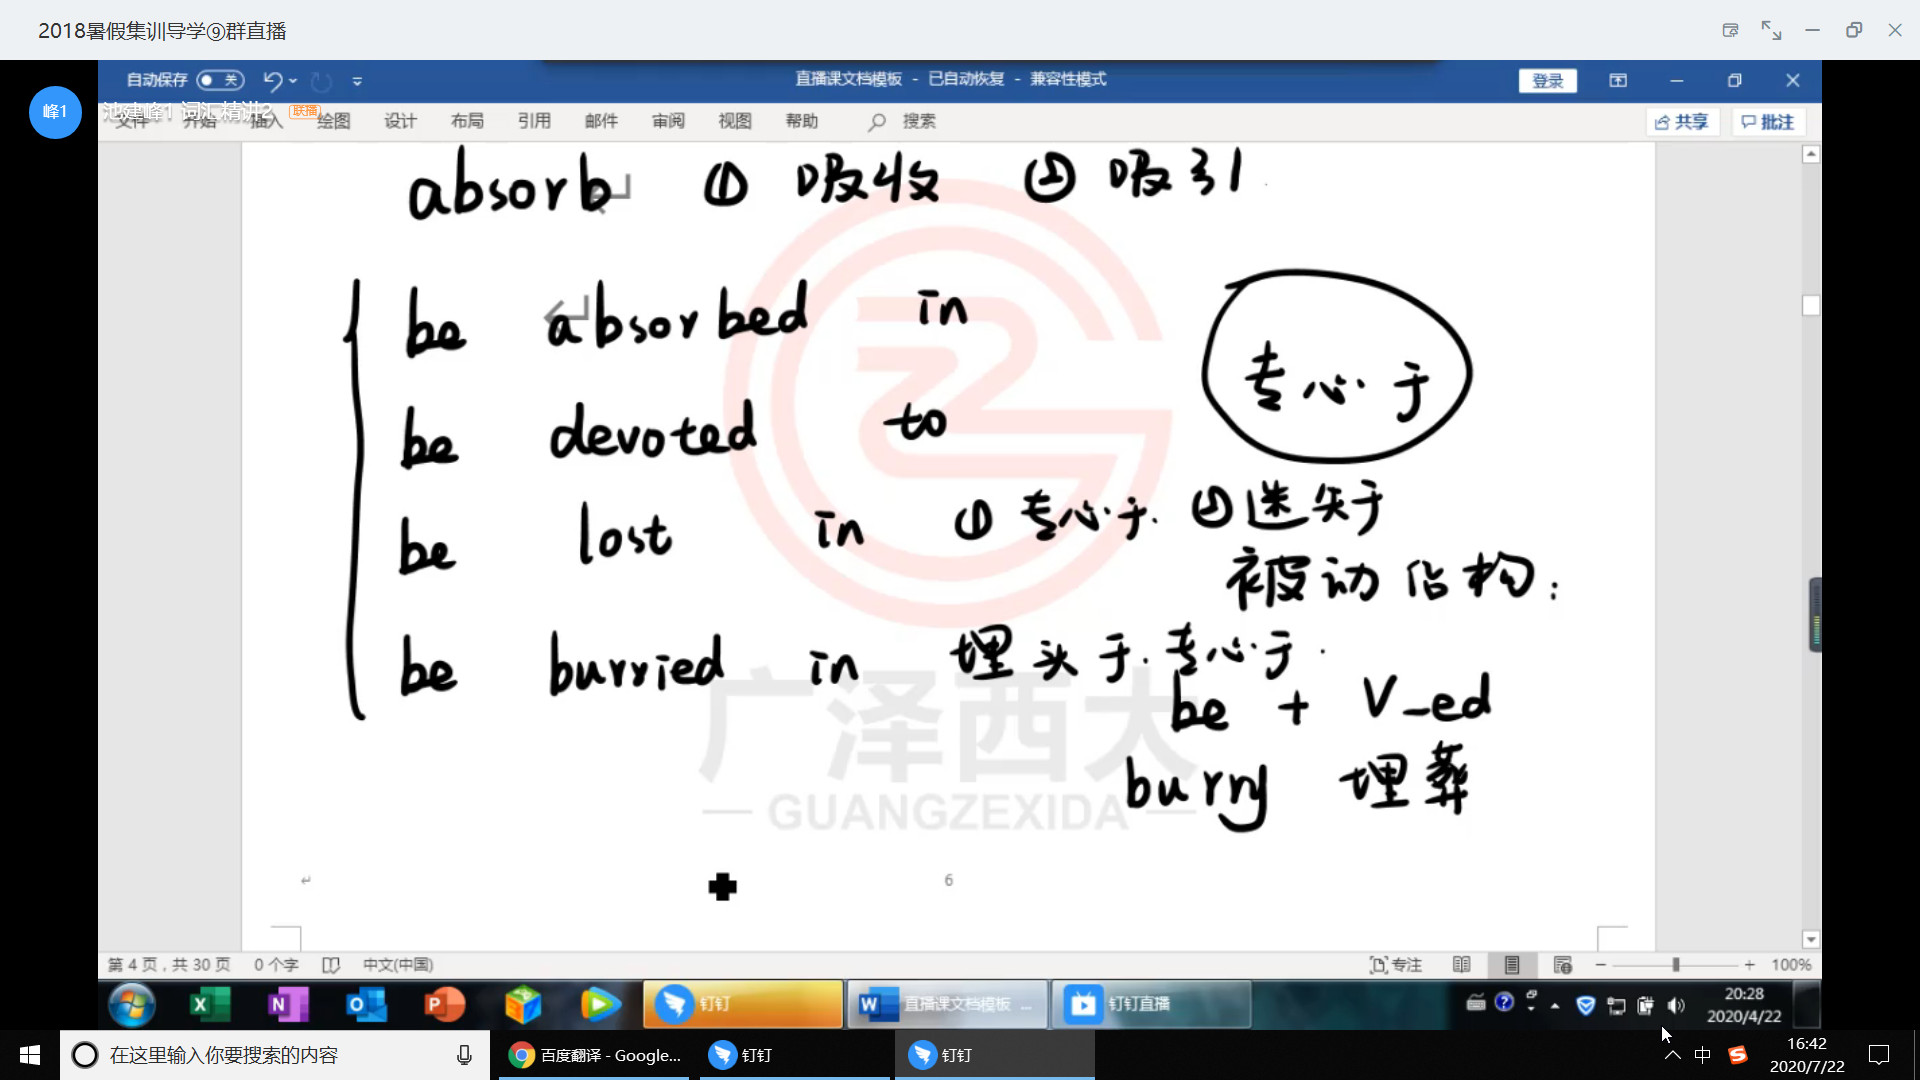 2018暑假集训导学⑨群直播
自动保存 关
直播课文档模板 - 已自动恢复 - 兼容性模式
登录
峰1
池建峰1 词汇精讲2 联播
文件 开始 插入 绘图 设计 布局 引用 邮件 审阅 视图 帮助 搜索
共享 批注
absorb ① 吸收 ② 吸引
be absorbed in
专心于
be devoted to
be lost in ① 专心于. ② 迷失于
被动结构:
be burried in 埋头于. 专心于.
be + V-ed
burry 埋葬
广泽西大
— GUANGZEXIDA —
6
第 4 页，共 30 页 0 个字 中文(中国) 专注 100%
钉钉 直播课文档模板 ... 钉钉直播
20:28
2020/4/22
在这里输入你要搜索的内容 百度翻译 - Google... 钉钉 钉钉 中
16:42
2020/7/22